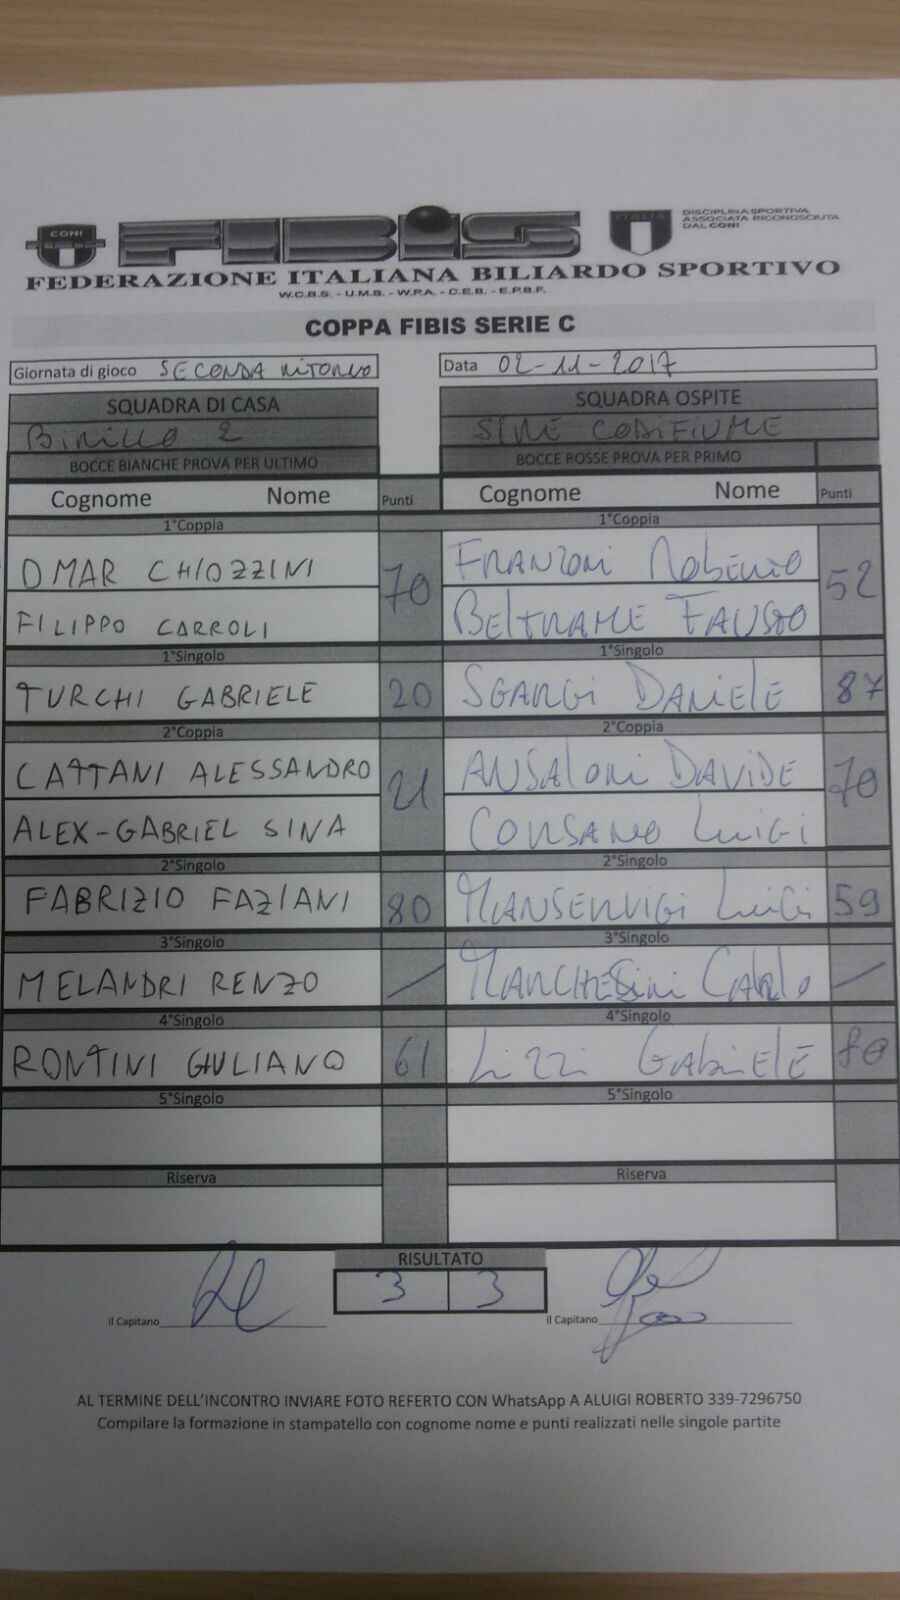 CONI
FIBIS
ITALIA
DISCIPLINA SPORTIVA
ASSOCIATA RICONOSCIUTA
DAL CONI
FEDERAZIONE ITALIANA BILIARDO SPORTIVO
W.C.B.S. - U.M.B. - W.P.A. - C.E.B. - E.P.B.F.
COPPA FIBIS SERIE C
Giornata di gioco SECONDA RITORNO Data 02-11-2017
SQUADRA DI CASA SQUADRA OSPITE
BIRILLO 2 SIRE CODIFIUME
BOCCE BIANCHE PROVA PER ULTIMO BOCCE ROSSE PROVA PER PRIMO
Cognome Nome Punti Cognome Nome Punti
1°Coppia 1°Coppia
OMAR CHIOZZINI 70 FRANZONI ROBERTO 52
FILIPPO CARROLI BELTRAME FAUSTO
1°Singolo 1°Singolo
TURCHI GABRIELE 20 SGARGI DANIELE 87
2°Coppia 2°Coppia
CATTANI ALESSANDRO 21 ANSALONI DAVIDE 70
ALEX-GABRIEL SINA CORSANO LUIGI
2°Singolo 2°Singolo
FABRIZIO FAZIANI 80 MANSERVIGI LUIGI 59
3°Singolo 3°Singolo
MELANDRI RENZO / MARCHESINI CARLO /
4°Singolo 4°Singolo
RONTINI GIULIANO 61 LIZZI GABRIELE 80
5°Singolo 5°Singolo
Riserva Riserva
RISULTATO
3 3
il Capitano il Capitano
AL TERMINE DELL'INCONTRO INVIARE FOTO REFERTO CON WhatsApp A ALUIGI ROBERTO 339-7296750
Compilare la formazione in stampatello con cognome nome e punti realizzati nelle singole partite